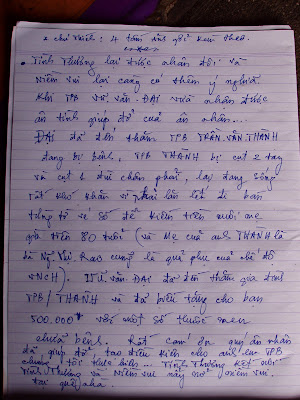 2 chú thích : 4 tấm ảnh gởi kèm theo.
Tình Thương lại được nhân đôi và
niềm vui lại càng có thêm ý nghĩa
khi TPB Vũ Văn. ĐẠI vừa nhận được
ân tình giúp đỡ của ân nhân...
ĐẠI đã đến thăm TPB TRẦN.VĂN.THÀNH
đang bị bịnh, TPB THÀNH bị cụt 2 tay
và cụt 1 đùi chân phải, lại đang sống
rất khó khăn vì phải lăn lết đi bán
từng tờ vé số để kiếm tiền nuôi mẹ
già trên 80 tuổi (và Mẹ của anh THÀNH là
bà cũng là quả phụ của chế độ
VNCH). VŨ. VĂN. ĐẠI đã đến thăm gia đình
TPB/THÀNH và đã biếu tặng cho bạn
500.000đ với một số thuốc men
chữa bệnh. Rất cảm ơn quý ân nhân
đã giúp đỡ, tạo điều kiện cho anh em TPB
chúng tôi Tình Thương Kết nối
Tình Thương và Niềm vui này nở niềm vui.
tại quê nhà.